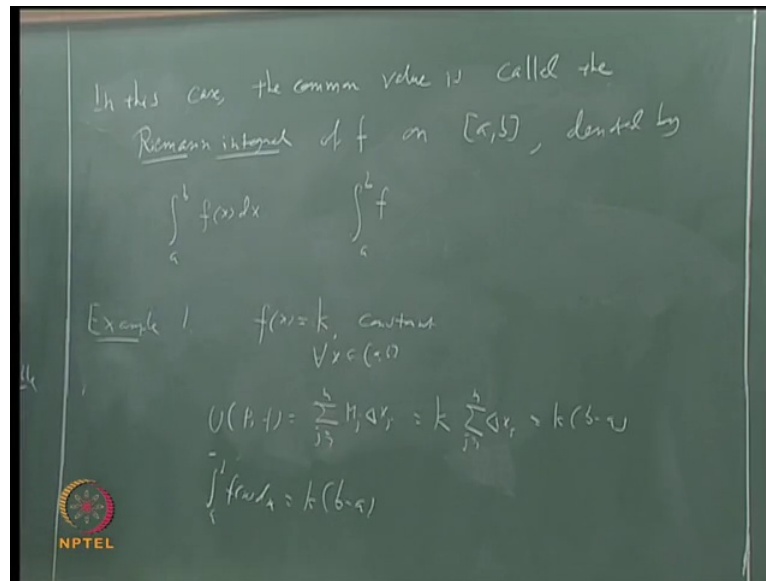 In this case, the common value is called the
Riemann integral of f on [a,b], denoted by
∫_a^b f(x)dx ∫_a^b f
Example 1 f(x) = k, constant
∀ x ∈ [a,b]
U(P,f) = ∑_{j=1}^n M_j Δx_j = k ∑_{j=1}^n Δx_j = k(b-a)
∫_a^b f(x)dx = k(b-a)
NPTEL